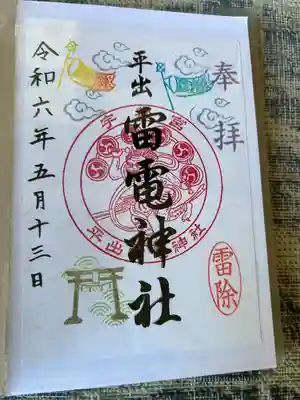 奉拝
平出
雷電神社
宇都宮
平出
神社
雷除
令和六年五月十三日